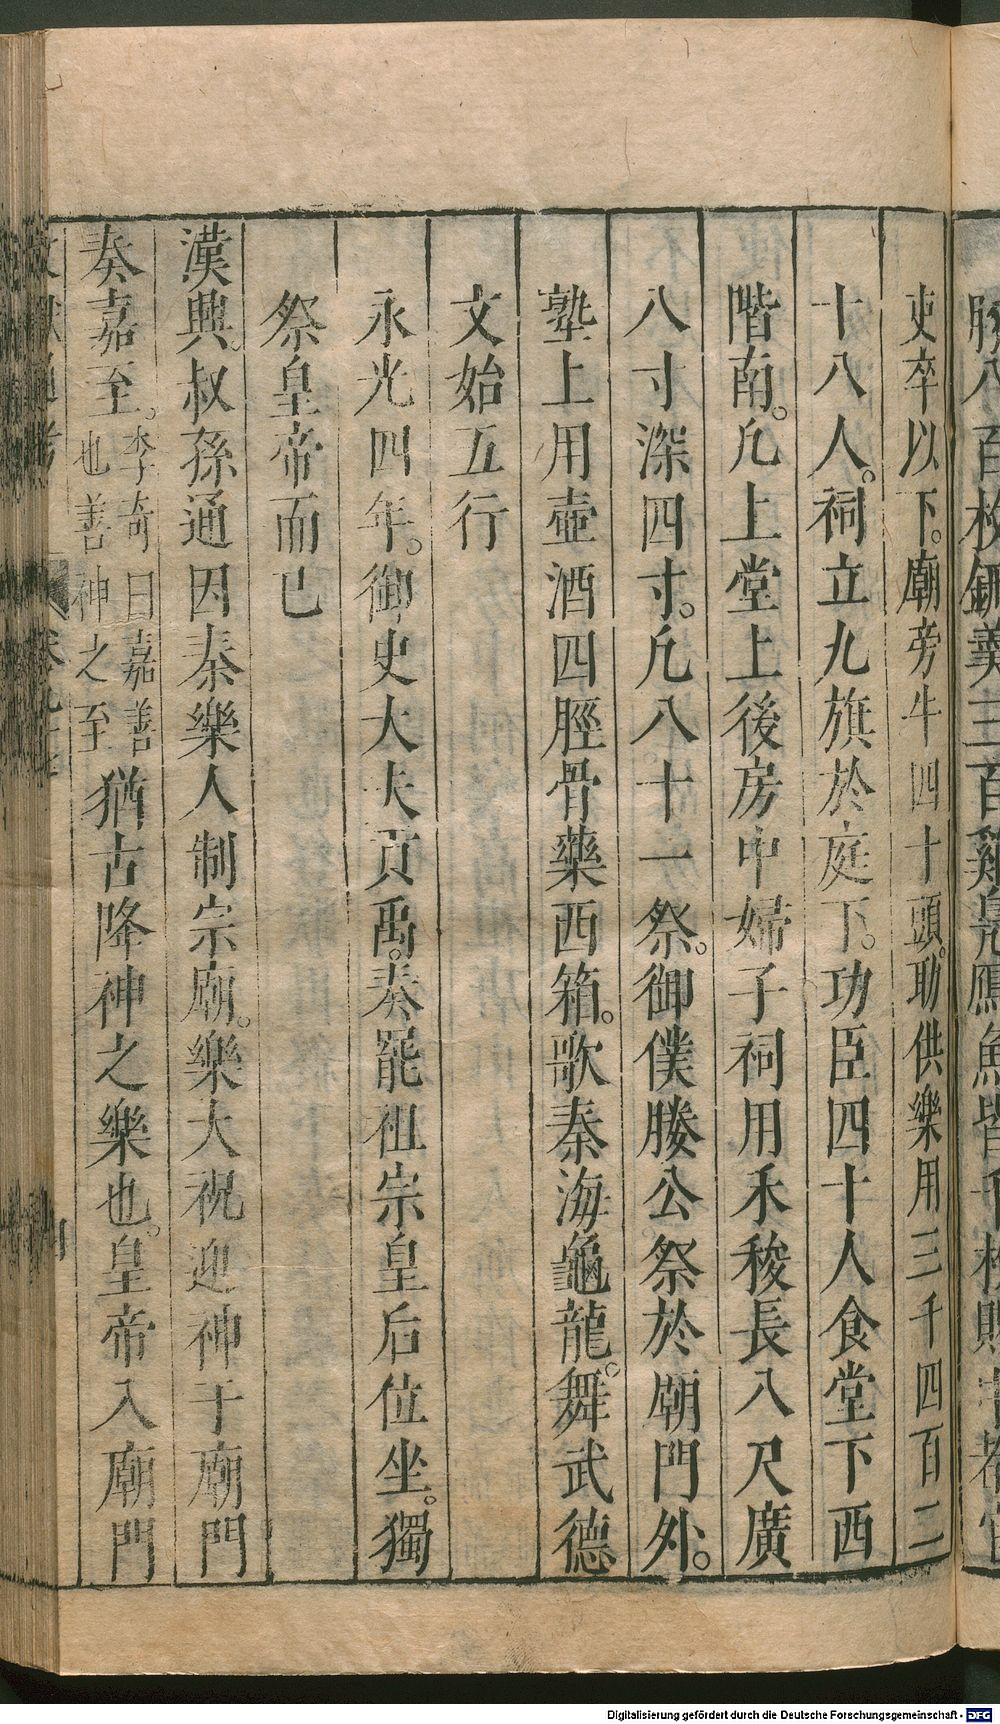 吏卒以下。廟旁牛四十頭。助供樂用三千四百二
十八人。祠立九旗於庭下。功臣四十人食堂下西
階南。凢上堂上後房中婦子祠用禾稷長八尺廣
八寸深四寸。凢八十一祭。御僕滕公祭於廟門外。
塾上用壺酒四脛骨藥西箱。歌秦海龜龍。舞武德
文始五行
永光四年。御史大夫貢禹。奏罷祖宗皇后位坐。獨
祭皇帝而已
漢興。叔孫通因秦樂人制宗廟。樂大祝迎神于廟門
奏嘉至。李奇曰嘉善也善神之至猶古降神之樂也。皇帝入廟門
Digitalisierung gefördert durch die Deutsche Forschungsgemeinschaft - DFG